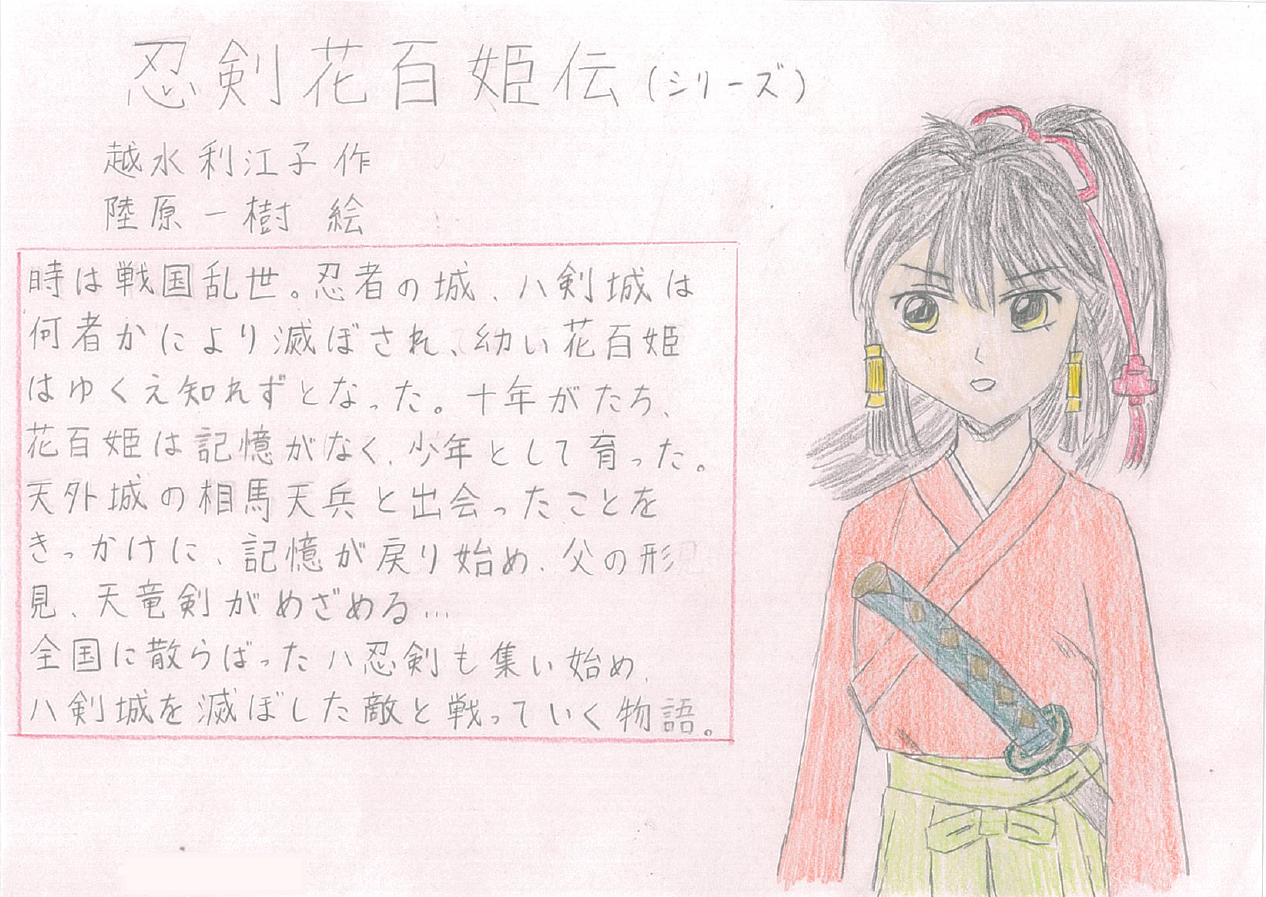 忍剣花百姫伝(シリーズ)
越水利江子 作
陸原一樹 絵
時は戦国乱世。忍者の城、八剣城は
何者かにより滅ぼされ、幼い花百姫
はゆくえ知れずとなった。十年がたち、
花百姫は記憶がなく、少年として育った。
天外城の相馬天兵と出会ったことを
きっかけに、記憶が戻り始め、父の形
見、天竜剣がめざめる…
全国に散らばった八忍剣も集い始め、
八剣城を滅ぼした敵と戦っていく物語。